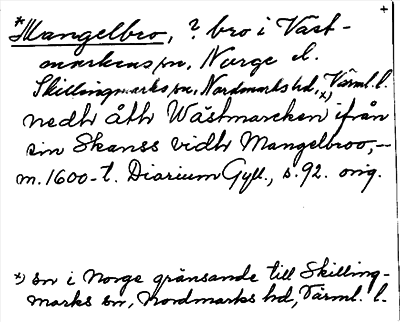 +
*Mangelbro, ? bro i Väst-
markens sn, Norge el.
Skillingmarks sn, Nordmarks hd, x) Värml. l.
nedh åth Wästmarcken ifrån
sin Skanss vidh Mangelbroo,—
m. 1600-t. Diarium Gyll., s. 92. orig.
x) sn i Norge gränsande till Skilling-
marks sn, Nordmarks hd, Värml. l.